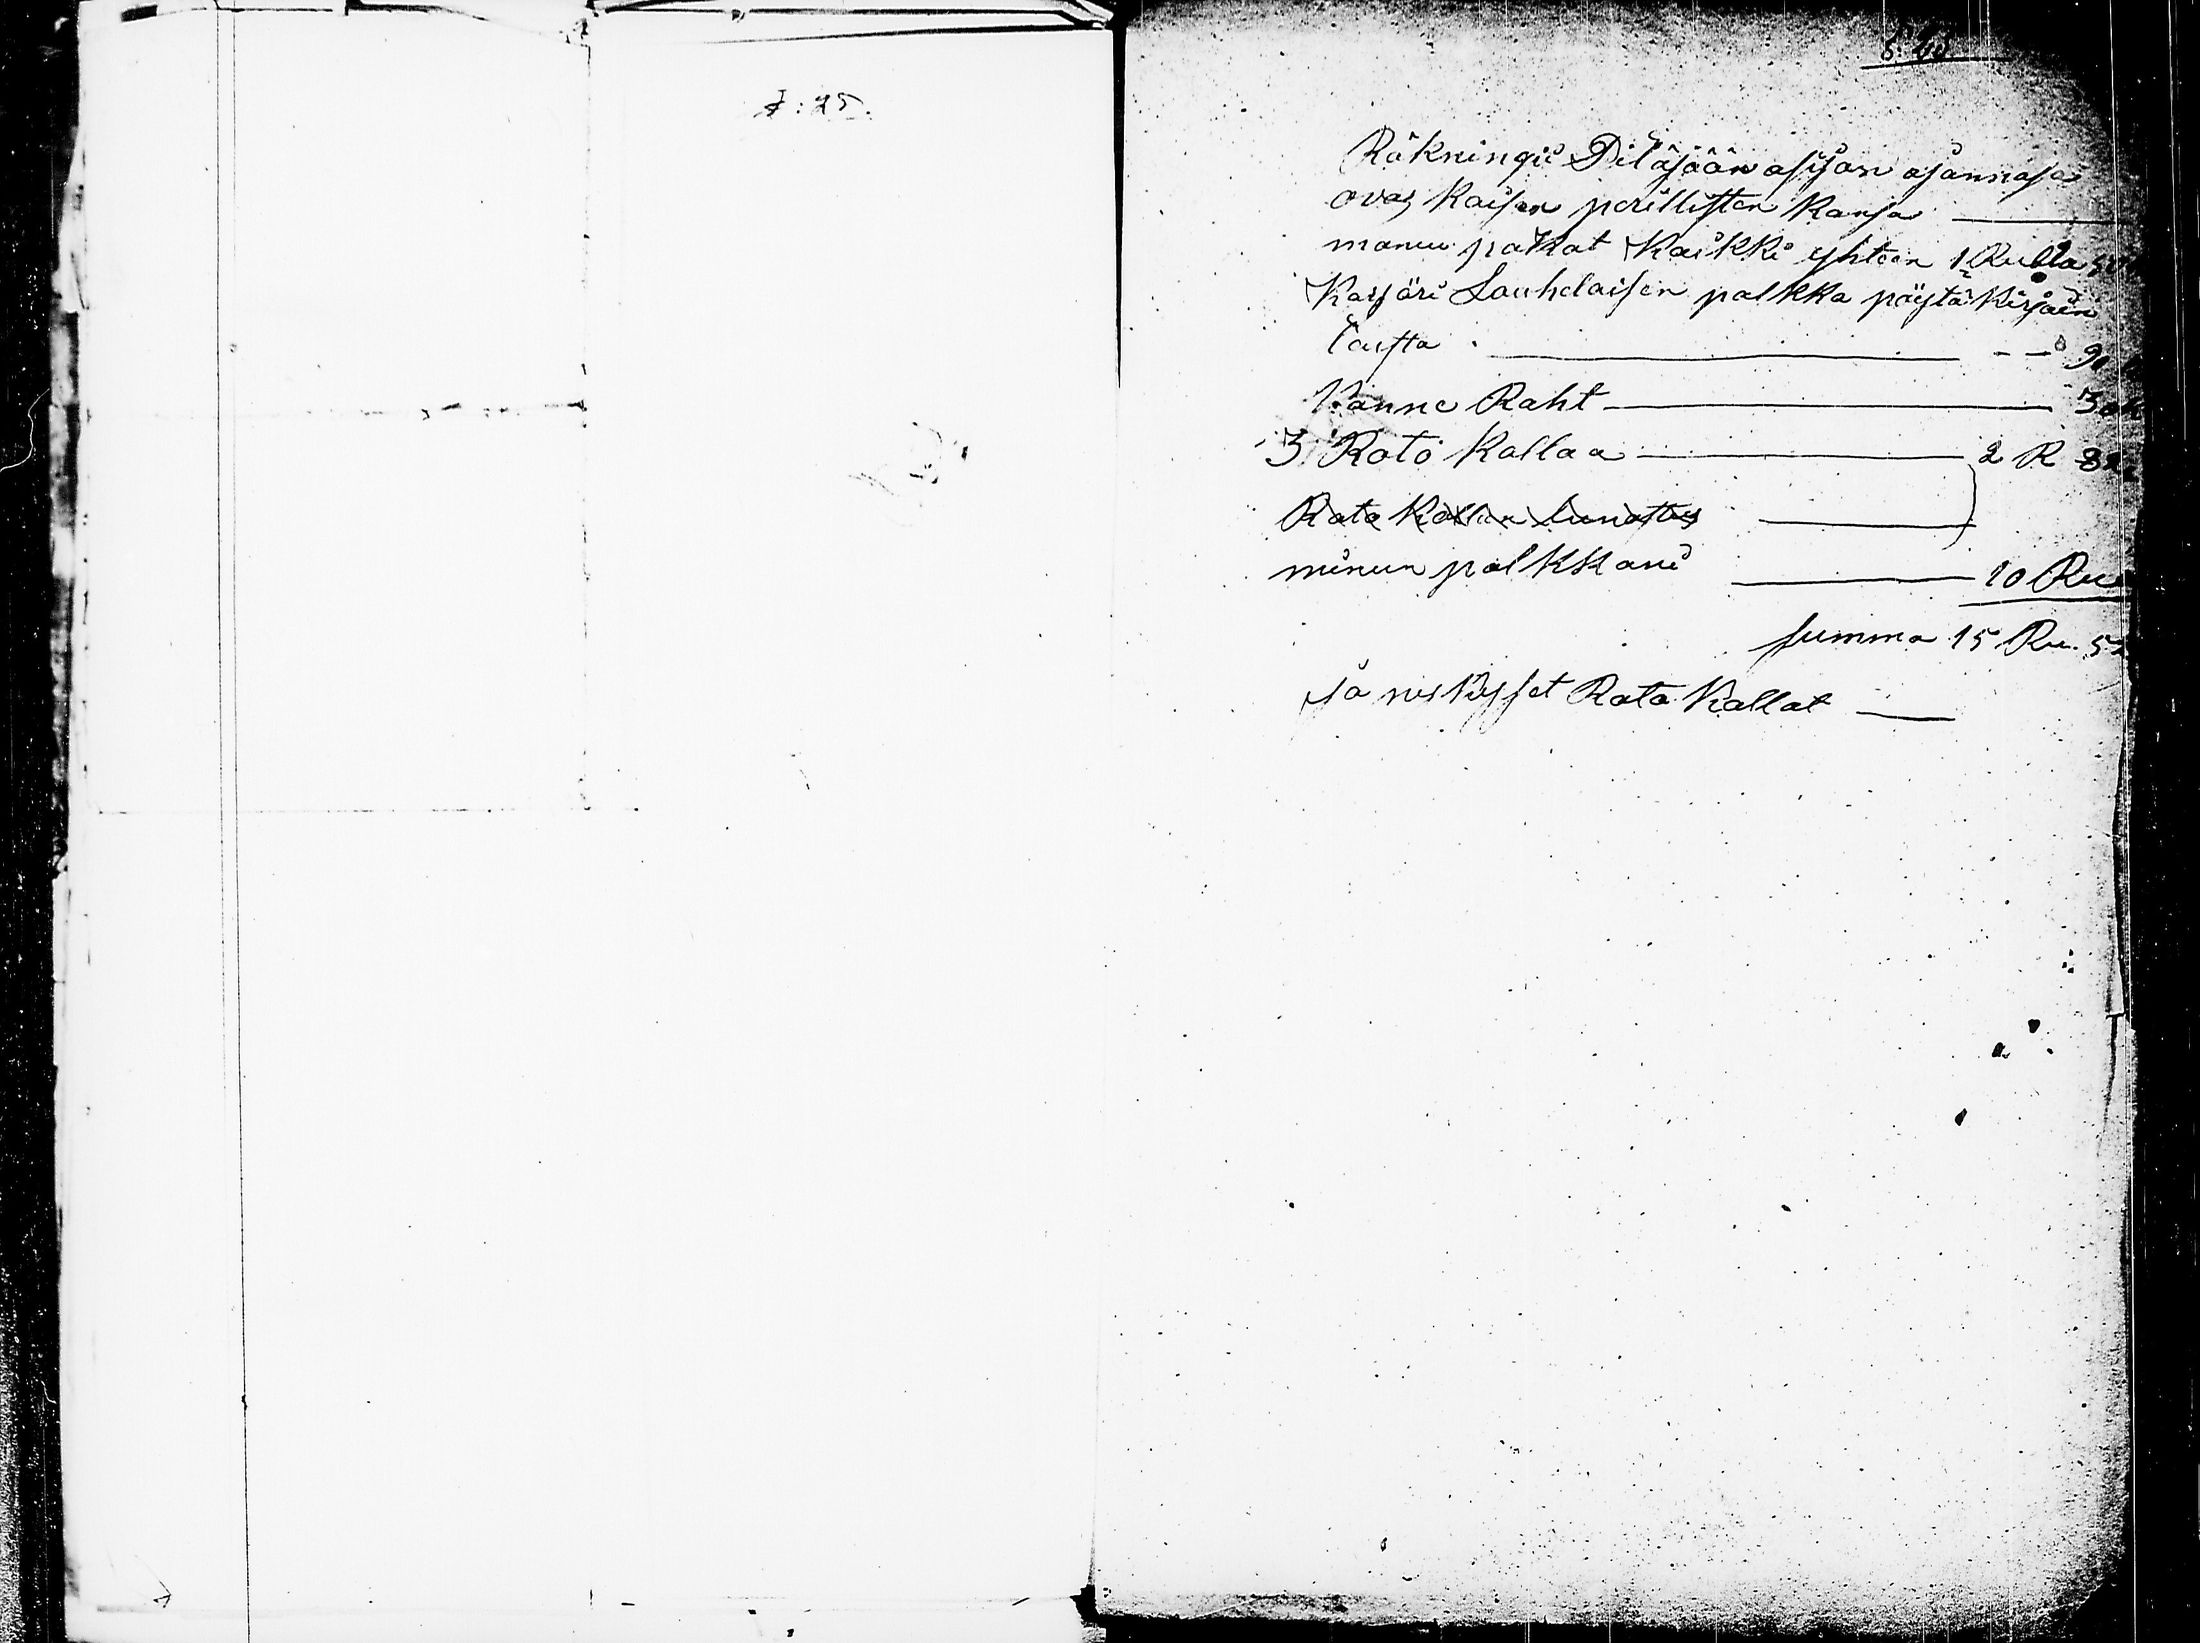 Räkningi Pitäjään asijan ajannasa
ovas Kaisen perillisten Kansa
manun palkat Kaikki yhteen 1 Rubla
Karjäri Louhelaisen palkka pöytäkirjain
Tausta 90
Kanne Raht 30
3 Rato Kallaa 2 R 82
Rato Kallan lunastus
minun palkkani 10 Ru
summa 15 Ru. 52
ja Rato Kallat